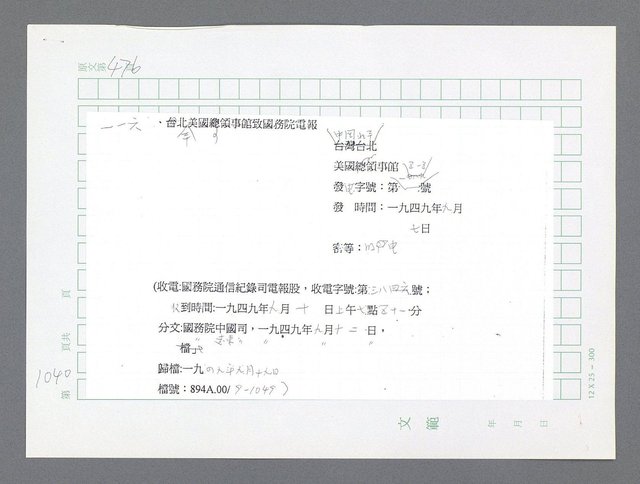 原文第476
一一六
・台北美國總領事館致國務院電報
中国北平
台灣台北
美國總領事館
發電字號：第 號
發 時間：一九四九年九月
七日
密等：明电
(收電:國務院通信紀錄司電報股，收電字號:第三八四六號；
收到時間:一九四九年九月十 日上午七點五十一分
分文:國務院中國司，一九四九年九月十二日，
歸檔:一九四九年九月十九日
檔號：894A.00/9-1049)
第 頁共 頁
1040
文範
年 月 日
12 X 25 – 300